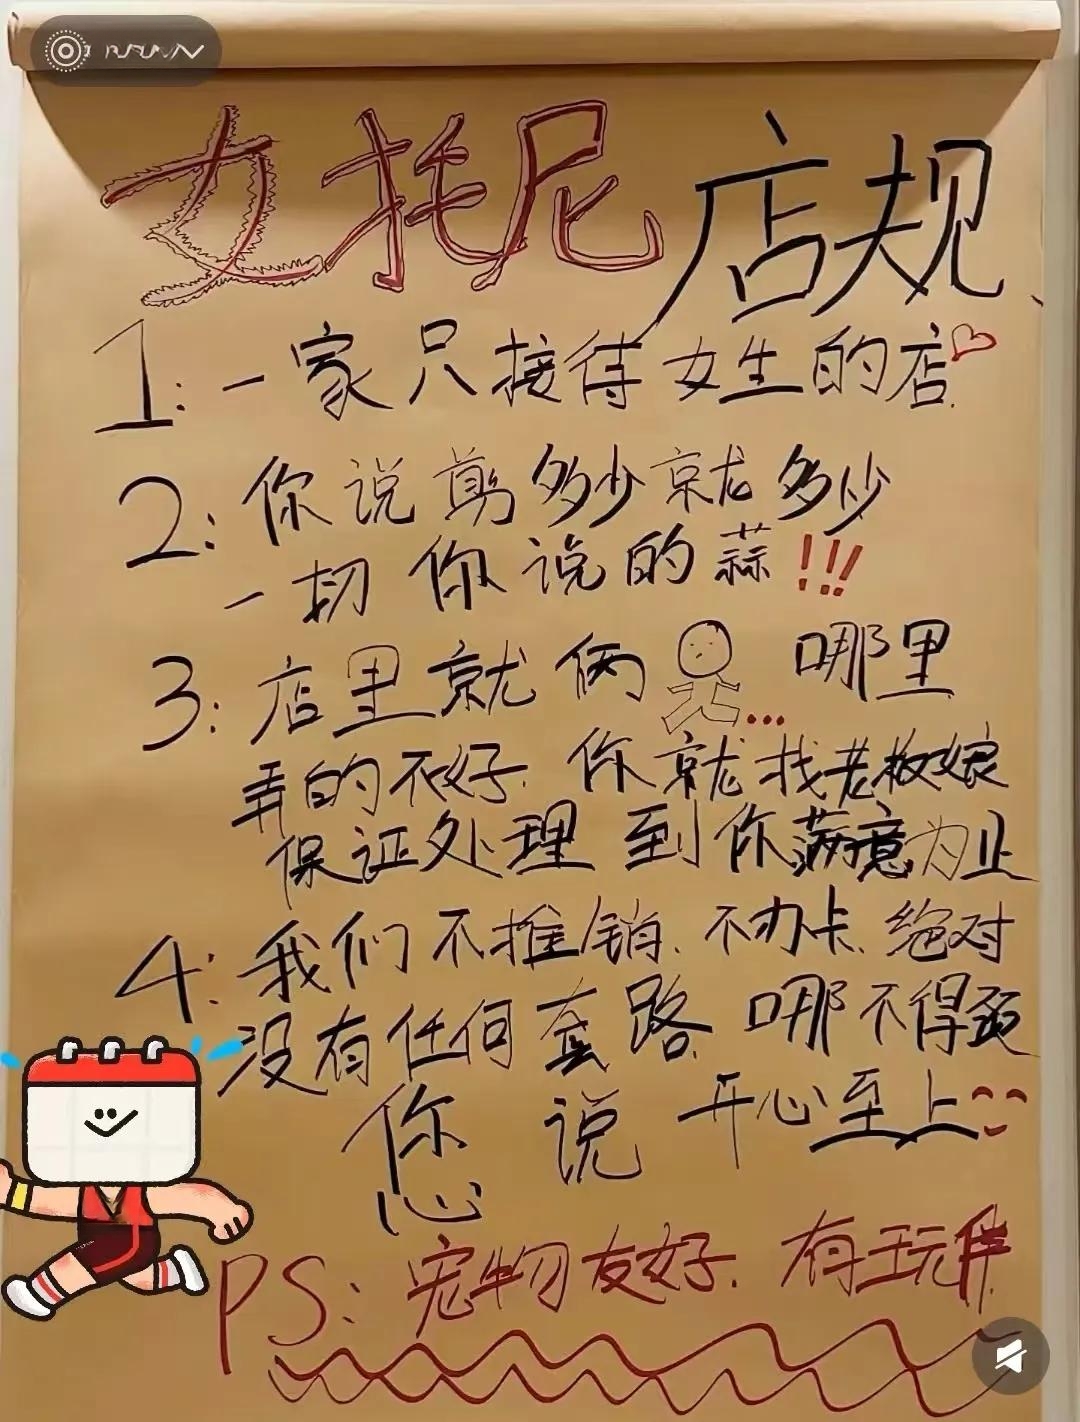 女托尼 店规
1: 一家只接待女生的店
2: 你说剪多少就多少
一切你说的蒜!!!
3: 店里就俩 ... 哪里
弄的不好. 你就找老板娘
保证处理 到你满意为止
4: 我们不推销. 不办卡. 绝对
没有任何套路. 哪不得劲
您 说 开心至上
PS: 宠物友好. 有玩伴